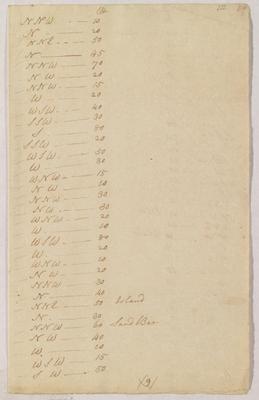 N N W - 10
N - 20
N N E - 50
N - 45
N N W - 70
N W - 20
N N W - 15
W - 20
W S W - 40
S S W - 30
S - 80
S S W - 20
W S W - 50
W - 30
W N W - 15
N W - 10
N N W - 30
N W - 30
W N W - 20
W - 10
W S W - 30
W - 20
W N W - 10
N W - 20
N N W - 30
N - 40
N N E - 50 Island
N - 30
N N W - 60 Sand Bar
N W - 40
W - 20
W S W - 15
S W - 50
(9)